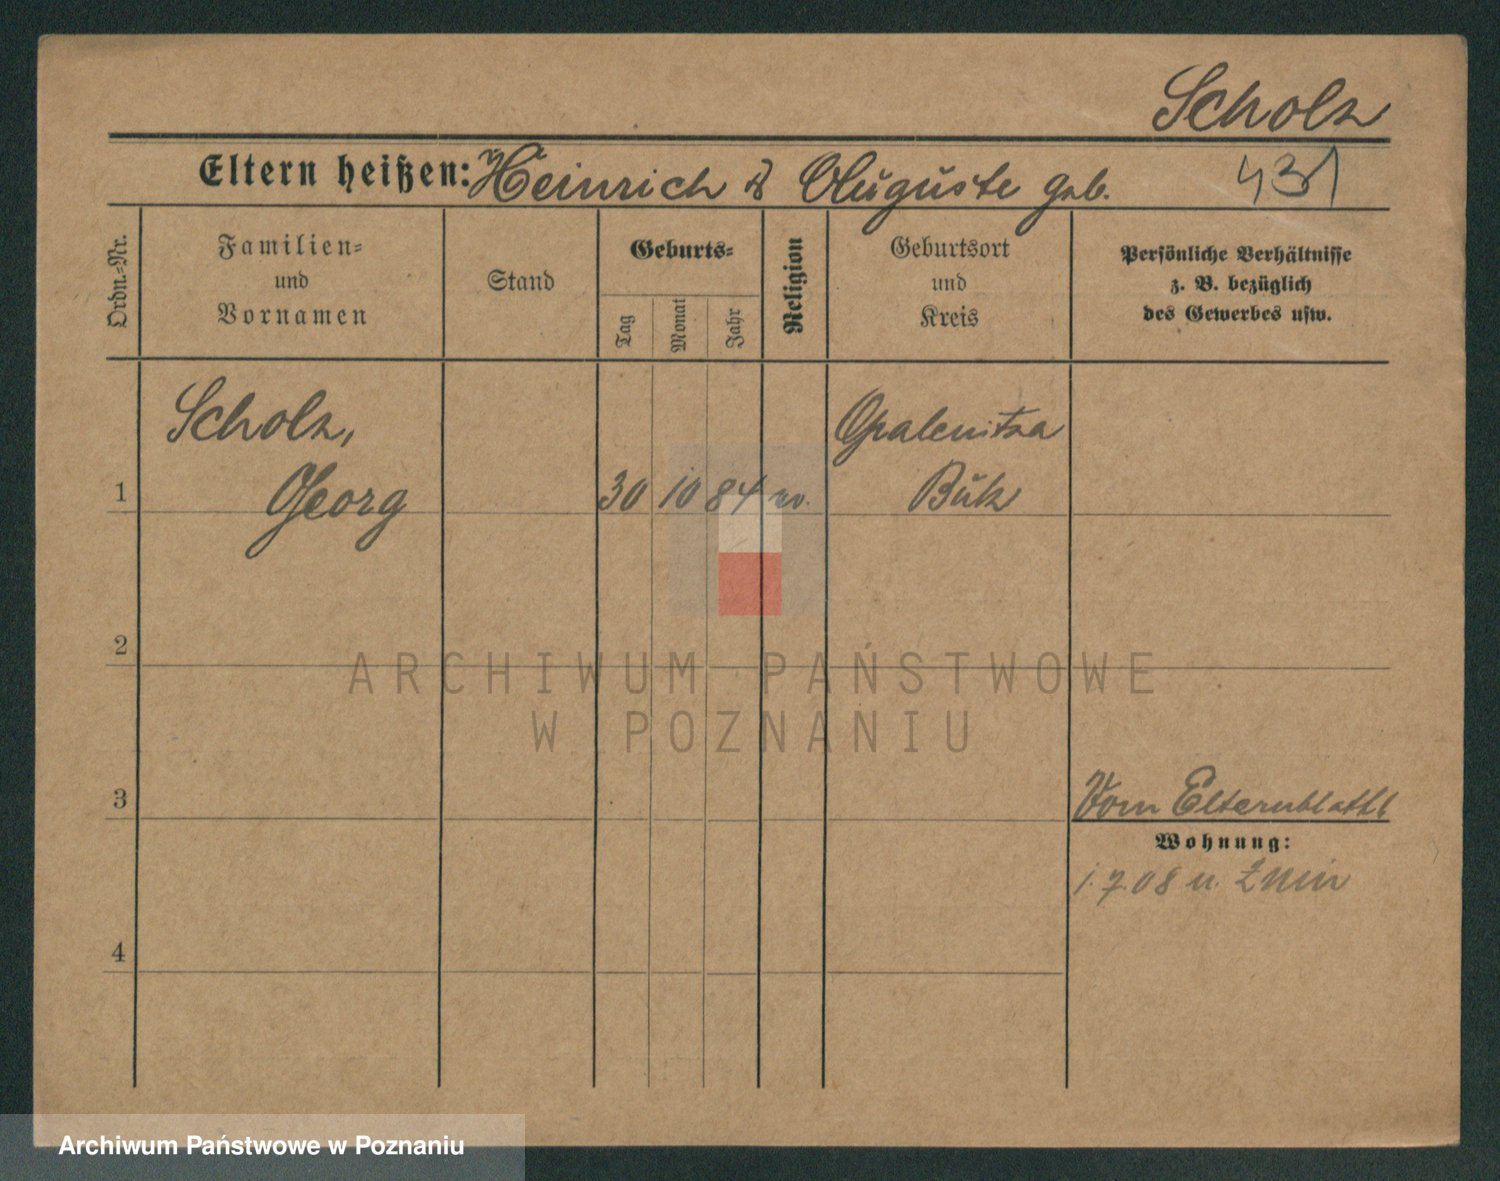 Scholz
Eltern heißen: Heinrich & Auguste geb.
431
Ordn.-Nr.
Familien-
und
Vornamen
Stand
Geburts-
Tag
Monat
Jahr
Religion
Geburtsort
und
Kreis
Persönliche Verhältnisse
z. B. bezüglich
des Gewerbes usw.
1
Scholz,
Georg
30 10 84 ev.
Opalenitza
Buk
2
3
Vom Elternblatt
Wohnung:
1.7.08 u. Znin
4
ARCHIWUM PAŃSTWOWE
W POZNANIU
Archiwum Państwowe w Poznaniu